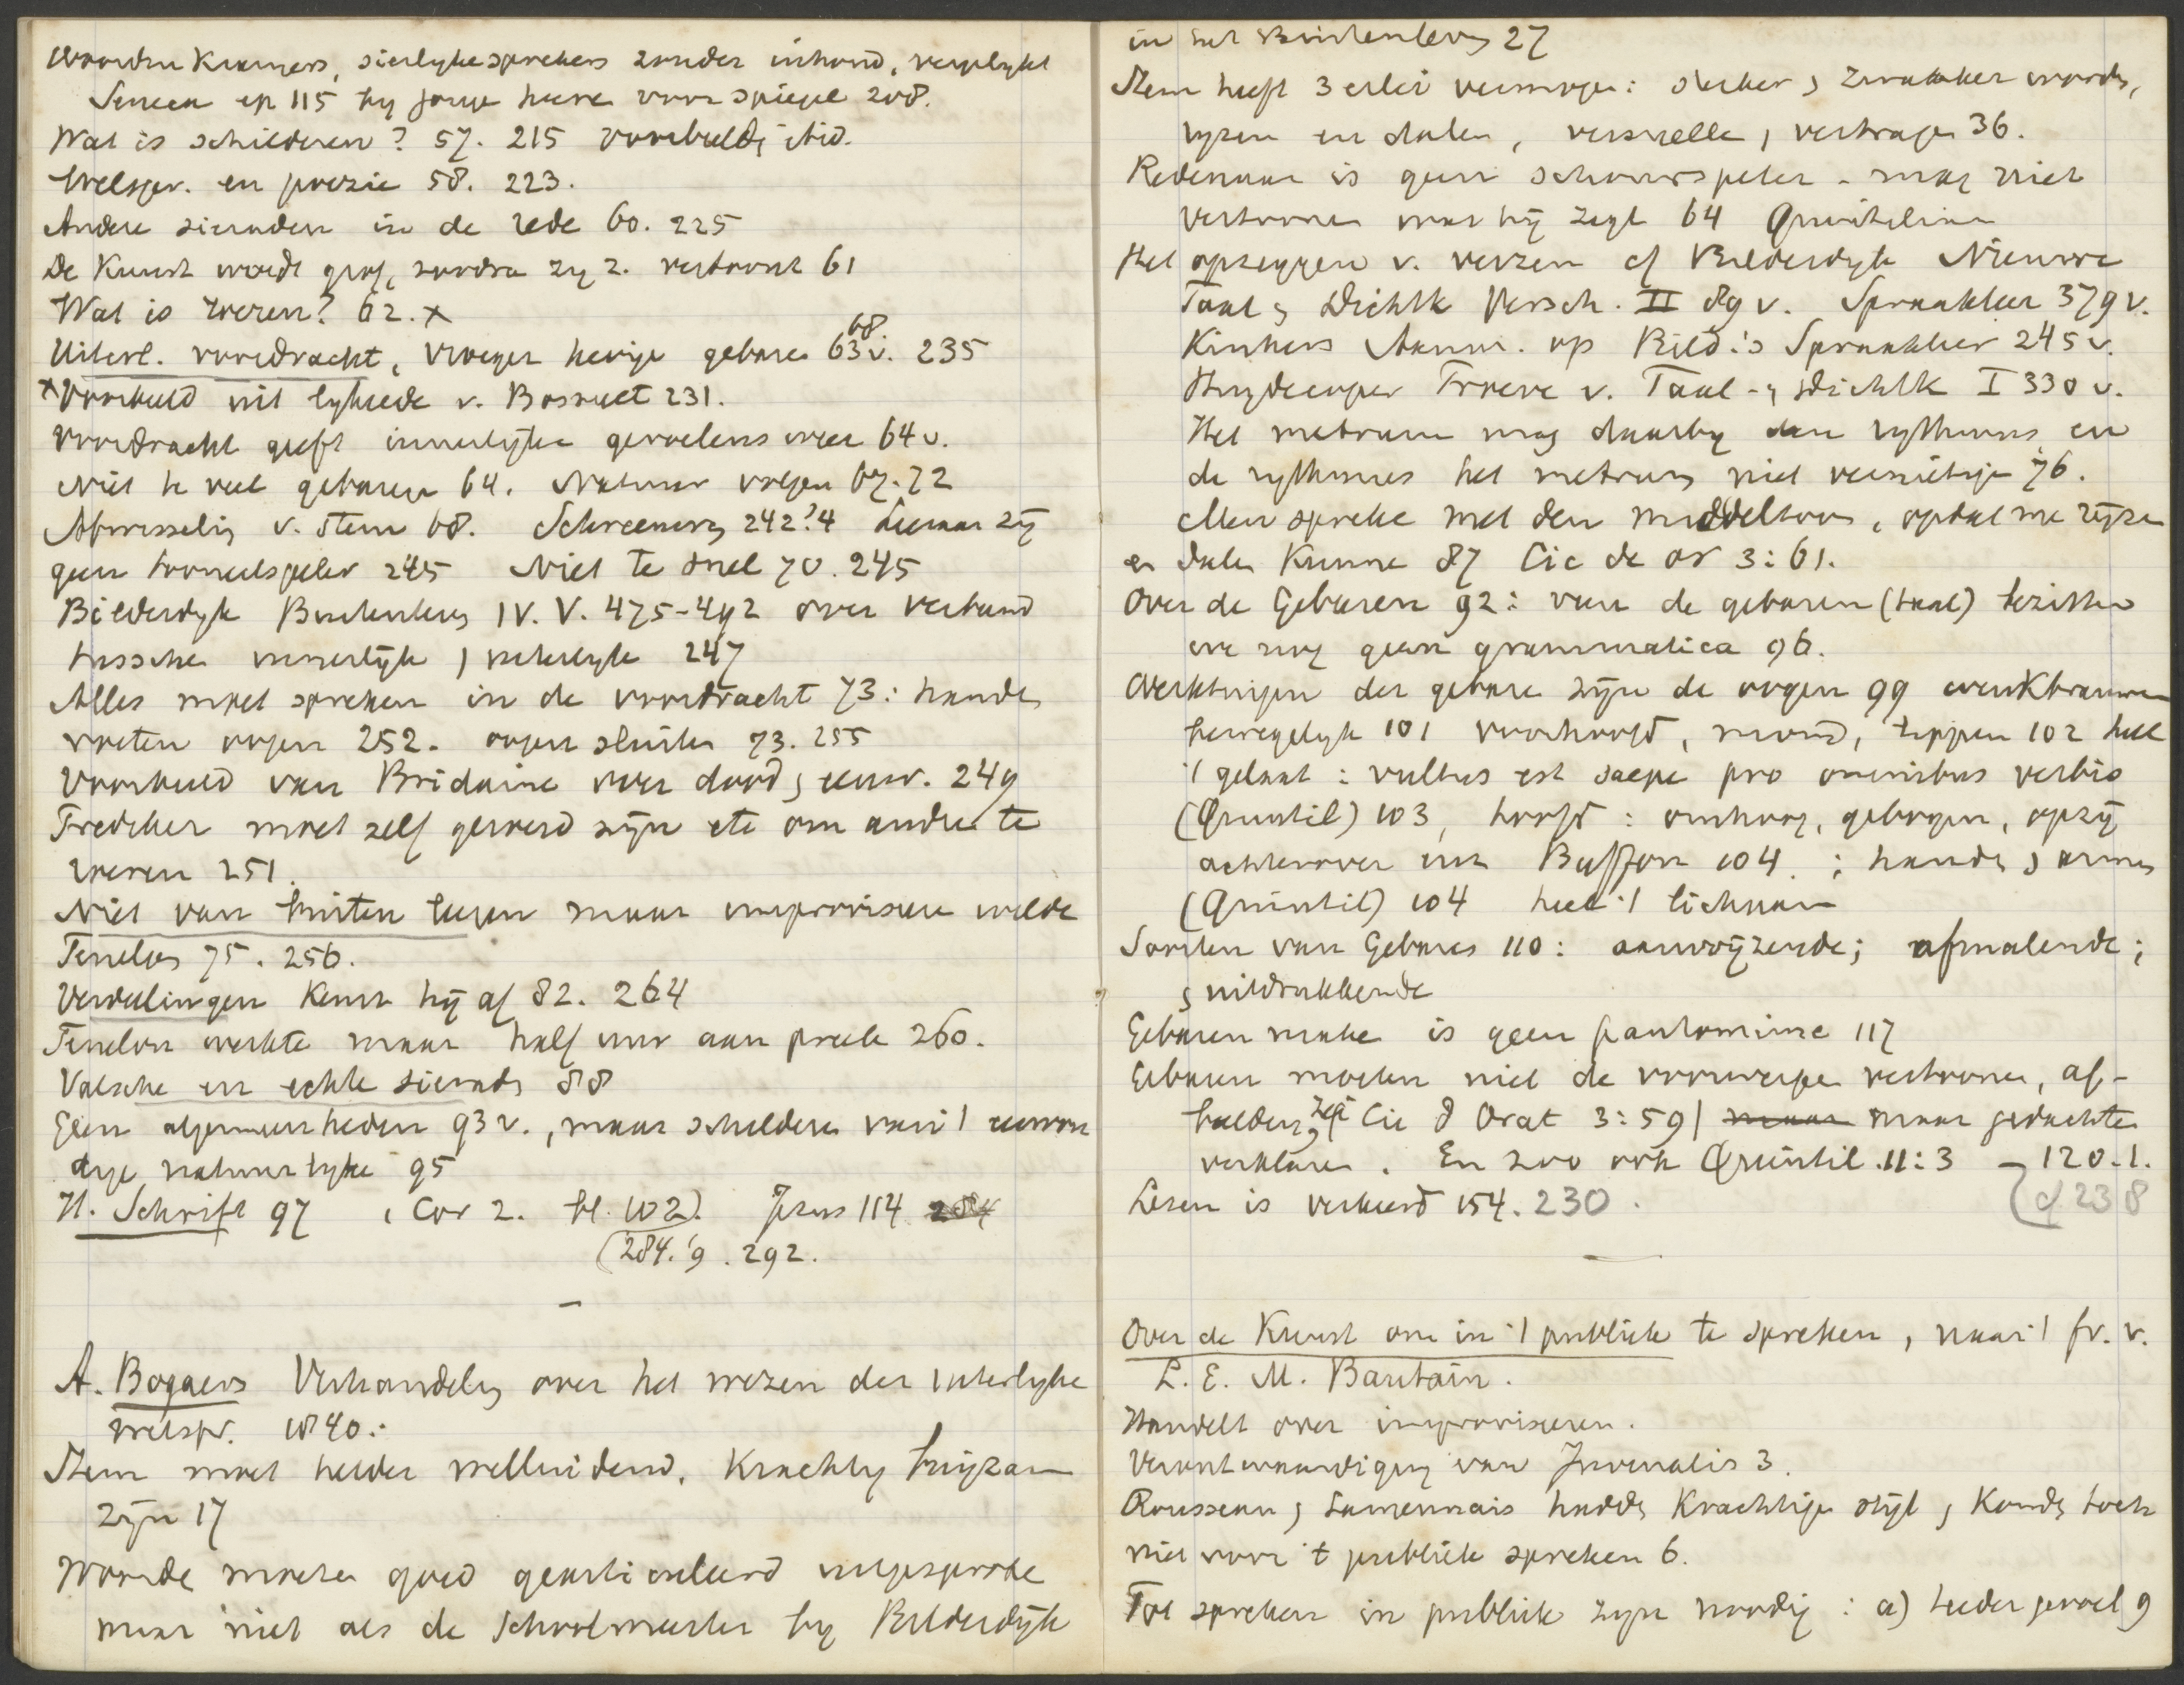 Woorden Kramers, sierlyke sprekers zonder inhoud, vergelykt
Seneca ep 115 by jonge heeren voor spiegel 208.
Wat is schilderen? 57. 215 voorbeeld ibid.
Welspr. en poezie 58. 223.
Andere sieraden in de rede 60. 225
De Kunst wordt grof, zoodra zy z. vertoont 61
Wat is roeren? 62. x
Uiterl. voordracht, vroeger hevige gebaren 63 v. 68 235
x Voorbeeld uit lykrede v. Bossuet 231.
Voordracht geeft innerlyke gevoelens weer 64 v.
Niet te veel gebaren 64. Natuur volgen 67. 72
Afwisseling v. stem 68. Schreeuwen 242? 4 Leeraar zÿ
geen tooneelspeler 245 Niet te snel 70. 245
Bilderdyk Buitenleven IV. V. 475-492 over verband
tusschen innerlÿk, uiterlyk 247
Alles moet spreken in de voordracht 73: handen
voeten oogen 252. oogen sluiten 73. 255
Voorbeeld van Bridaine over dood, eeuw. 249
Prediker moet zelf geroerd zÿn etc om andre te
roeren 251.
Niet van buiten leeren maar improviseeren wilde
Fenelon 75. 256.
Verdeelingen keurt hÿ af 82. 264
Fenelon werkte maar half uur aan preek 260.
Valsche en echte sieraden 88
Geen algemeenheden 93 v., maar schilderen van 't eenvou
dige natuurlyke 95
H. Schrift 97 , Cor 2. bl. 102). Jezus 114 284
(284. '9 . 292.
–
A. Bogaers Verhandeling over het wezen der uiterlyke
welspr. 1840:
Stem moet helder welluidend, krachtig buigzaam
zÿn 17
Woorden moeten goed gearticuleerd uitgesproken
maar niet als de schoolmeester by Bilderdÿk
in het Buitenleven 27
Stem heeft 3 erlei vermogen: sterker, zwakker worden,
ryzen en dalen, versnellen, vertragen 36.
Redenaar is geen schouwspeler - mag niet
vertoonen wat hÿ zegt 64 Quintiliaan
Het opzeggen v. verzen cf Bilderdyk Nieuwe
Taal, Dichtk Versch. II 89 v. Spraakleer 379 v.
Kinkers Aanm. op Bild.'s Spraakleer 245 v.
Huydecoper Proeve v. Taal-, dichtk I 330 v.
Het metrum mag daarby den rythmus en
de rythmus het metrum niet vernietigen 76.
Men spreke met den middeltoon, opdat me rÿzen
en dalen kunne 87 Cic de or 3: 61.
Over de Gebaren 92: van de gebaren (taal) bezitten
we nog geen grammatica 96.
Werktuigen der gebaren zÿn de oogen 99 wenkbrauwen
beweegelyk 101 voorhoofd, mond, lippen 102 heel
't gelaat: vultus est saepe pro omnibus verbis
(Quintil) 103, hoofd: omhoog, gebogen, opzÿ
achterover Buffon 104.; handen, armen
(Quintil) 104 heel 't lichaam
Soorten van Gebaren 110: aanwÿzende; afmalende;
, uitdrukkende
Gebaren maken is geen pantomime 117
Gebaren moeten niet de voorwerpen vertoonen, af-
beelden, zegt Cic d Orat 3: 59/ maar maar gedachten
verklaren. En zoo ook Quintil. 11: 3 – 120. 1.
Lezen is verkeerd 154. 230. (cf 238
–
Over de Kunst om in 't publiek te spreken, naar 't fr. v.
L. E. M. Bautain.
Handelt over improviseeren.
Verontwaardiging van Juvenalis 3.
Rousseau, Lamennais hadden krachtigen stÿl, konden toch
niet voor 't publiek spreken 6.
Tot spreken in publiek zyn noodig: a) teeder gevoel 9